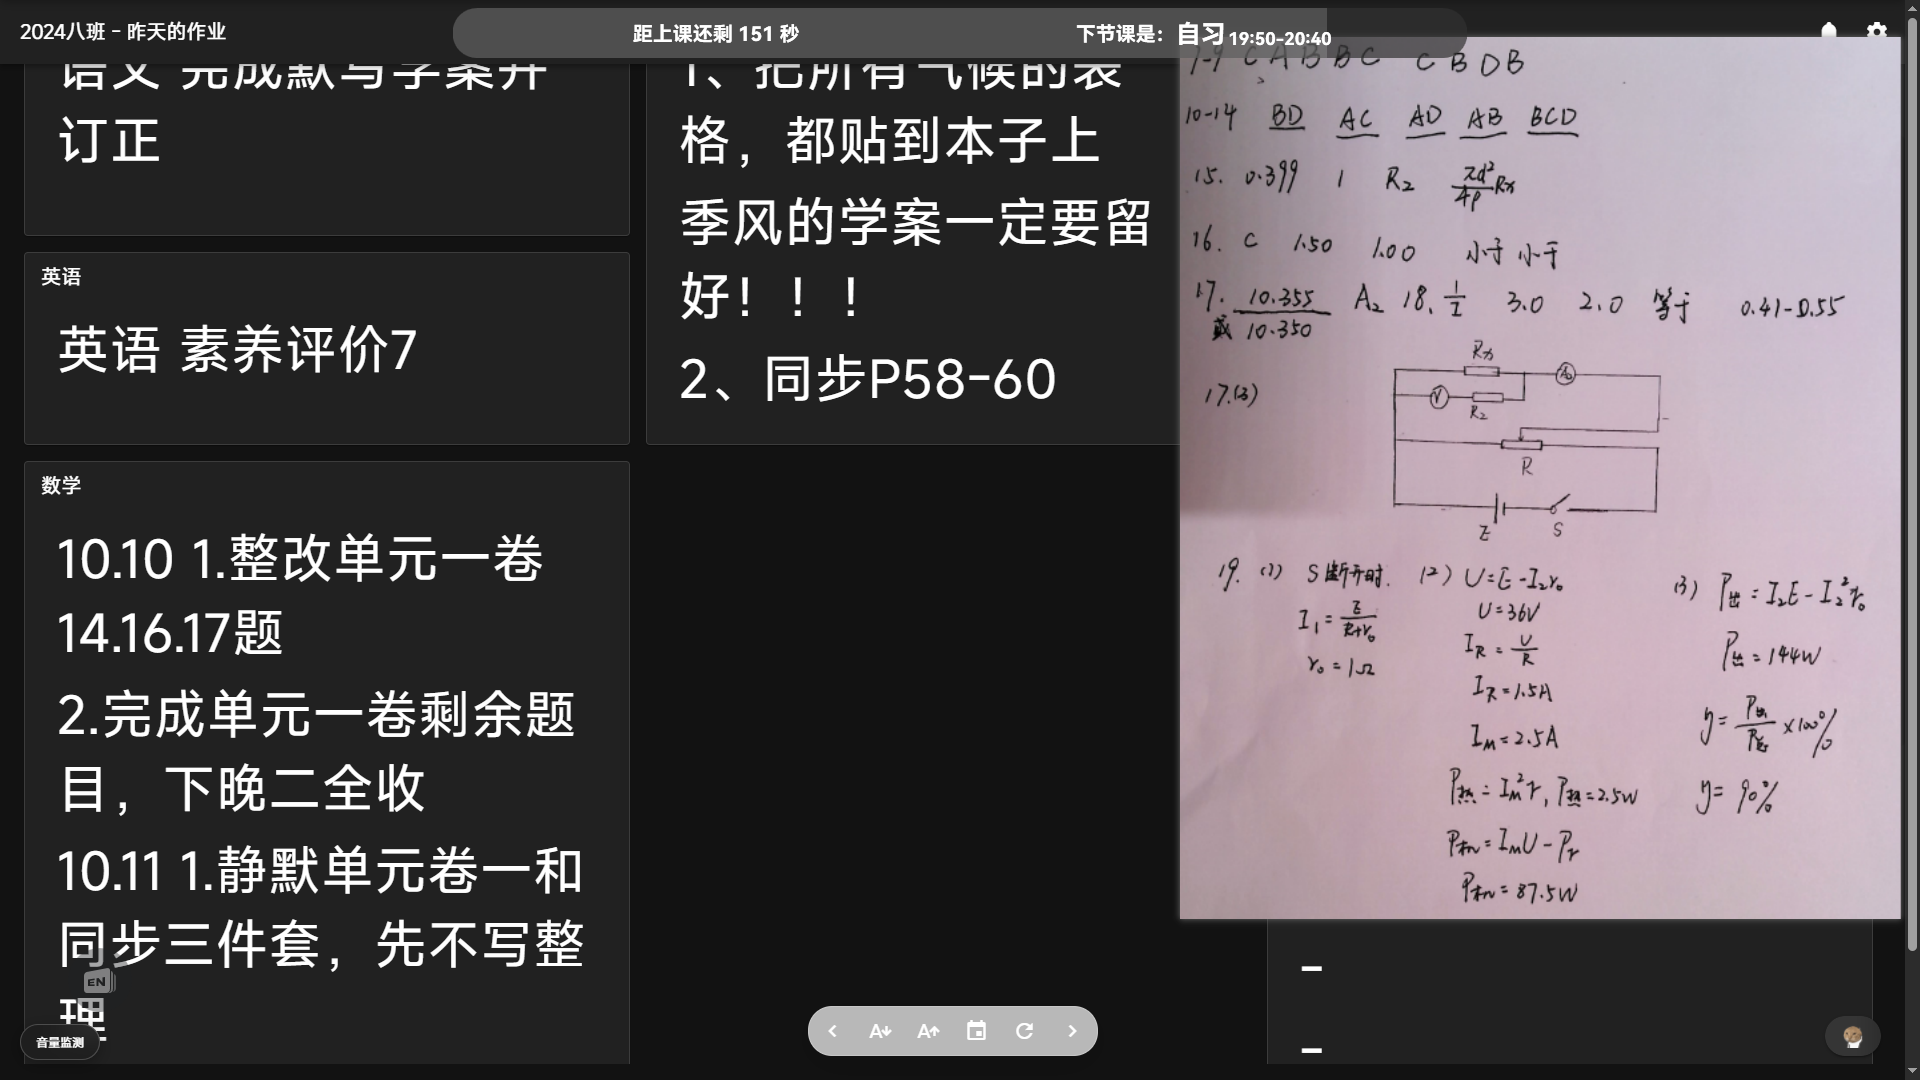 2024八班 - 昨天的作业
距上课还剩 151 秒
下节课是： 自习 19:50-20:40
语文 完成默写学案并
订正
英语
英语 素养评价7
数学
10.10 1.整改单元一卷
14.16.17题
2.完成单元一卷剩余题
目，下晚二全收
10.11 1.静默单元卷一和
同步三件套，先不写整
理
EN
音量监测
1、把所有气候的表
格，都贴到本子上
季风的学案一定要留
好！！！
2、同步P58-60
C A B B C C B D B
10-14 BD AC AD AB BCD
15. 0.399 1 R₂ πd²/4ρ Rx
16. C 1.50 1.00 小于 小于
17. 10.355 A₂ 18. 1/I 3.0 2.0 等于 0.41-0.55
或 10.350
17.(3)
Rx
A₀
V
R₂
R
E
S
19. (1) S断开时.
I₁ = E/(R+r₀)
r₀ = 1Ω
(2) U=E-I₂r₀
U=36V
I_R = U/R
I_R = 1.5A
I_M = 2.5A
P热 = I_M²r, P热 = 2.5W
P机 = I_MU - Pr
P机 = 87.5W
(3) P出 = I₂E - I₂²r₀
P出 = 144W
η = P出/P总 ×100%
η = 90%
–
–